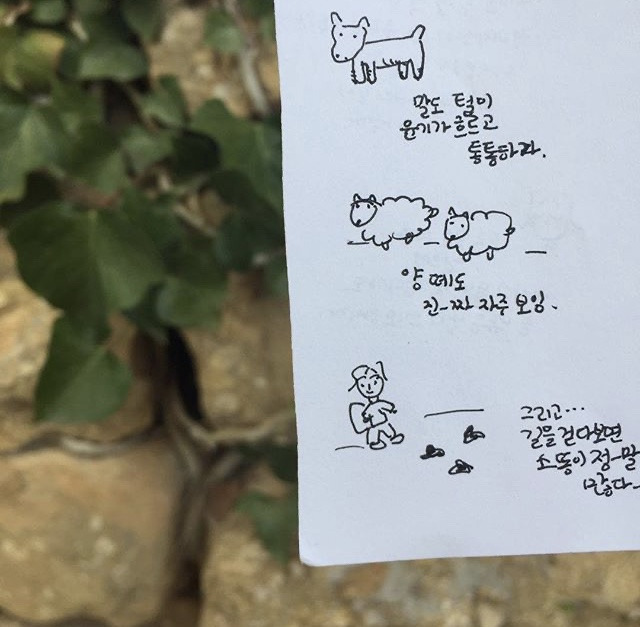 말도 털이
윤기가 흐르고
통통하다.
양 떼도
진-짜 자주 보임.
그리고...
길을 걷다보면
소똥이 정-말
많다-